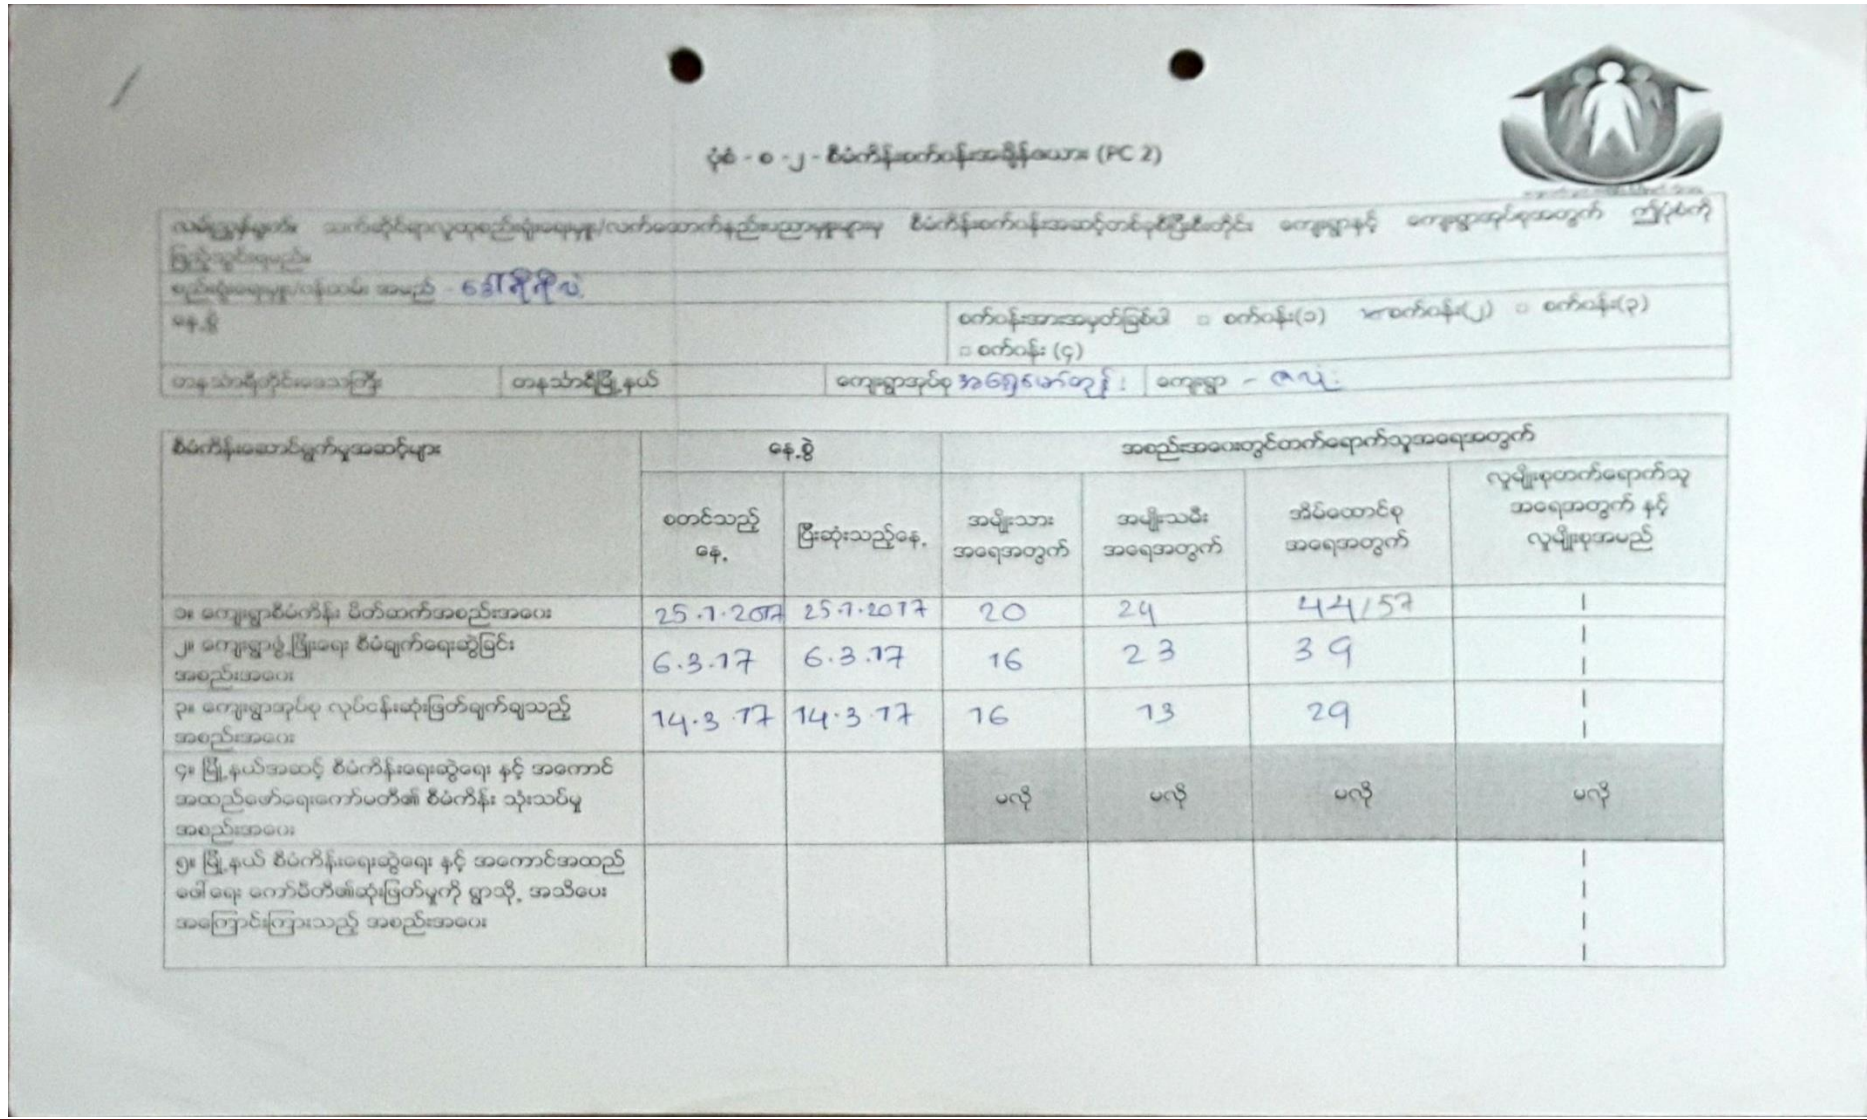 ပုံစံ - စ -၂ - စီမံကိန်းစက်ဝန်းအချိန်ဇယား (PC 2)
လမ်းညွှန်ချက်။ သက်ဆိုင်ရာလူထုစည်းရုံးရေးမှူး/လက်ထောက်နည်းပညာမှူးများမှ စီမံကိန်းစက်ဝန်းအဆင့်တစ်ခုစီပြီးစီးတိုင်း ကျေးရွာနှင့် ကျေးရွာအုပ်စုအတွက် ဤပုံစံကို
ဖြည့်သွင်းရမည်။
စည်းရုံးရေးမှူး/ဝန်ထမ်း အမည် -
နေ့စွဲ
စက်ဝန်းအားအမှတ်ခြစ်ပါ □ စက်ဝန်း(၁) စက်ဝန်း(၂) □ စက်ဝန်း(၃)
□ စက်ဝန်း (၄)
တနင်္သာရီတိုင်းဒေသကြီး တနင်္သာရီမြို့နယ် ကျေးရွာအုပ်စု ကျေးရွာ -
စီမံကိန်းဆောင်ရွက်မှုအဆင့်များ နေ့စွဲ အစည်းအဝေးတွင်တက်ရောက်သူအရေအတွက်
စတင်သည့်
နေ့
ပြီးဆုံးသည့်နေ့
အမျိုးသား
အရေအတွက်
အမျိုးသမီး
အရေအတွက်
အိမ်ထောင်စု
အရေအတွက်
လူမျိုးစုတက်ရောက်သူ
အရေအတွက် နှင့်
လူမျိုးစုအမည်
၁။ ကျေးရွာစီမံကိန်း မိတ်ဆက်အစည်းအဝေး 25.1.2017 25.1.2017 20 24 44/57
၂။ ကျေးရွာဖွံ့ဖြိုးရေး စီမံချက်ရေးဆွဲခြင်း
အစည်းအဝေး
6.3.17 6.3.17 16 23 39
၃။ ကျေးရွာအုပ်စု လုပ်ငန်းဆုံးဖြတ်ချက်ချသည့်
အစည်းအဝေး
14.3.17 14.3.17 16 13 29
၄။ မြို့နယ်အဆင့် စီမံကိန်းရေးဆွဲရေး နှင့် အကောင်
အထည်ဖော်ရေးကော်မတီ၏ စီမံကိန်း သုံးသပ်မှု
အစည်းအဝေး
မလို မလို မလို မလို
၅။ မြို့နယ် စီမံကိန်းရေးဆွဲရေး နှင့် အကောင်အထည်
ဖေါ်ရေး ကော်မီတီ၏ဆုံးဖြတ်မှုကို ရွာသို့ အသိပေး
အကြောင်းကြားသည့် အစည်းအဝေး